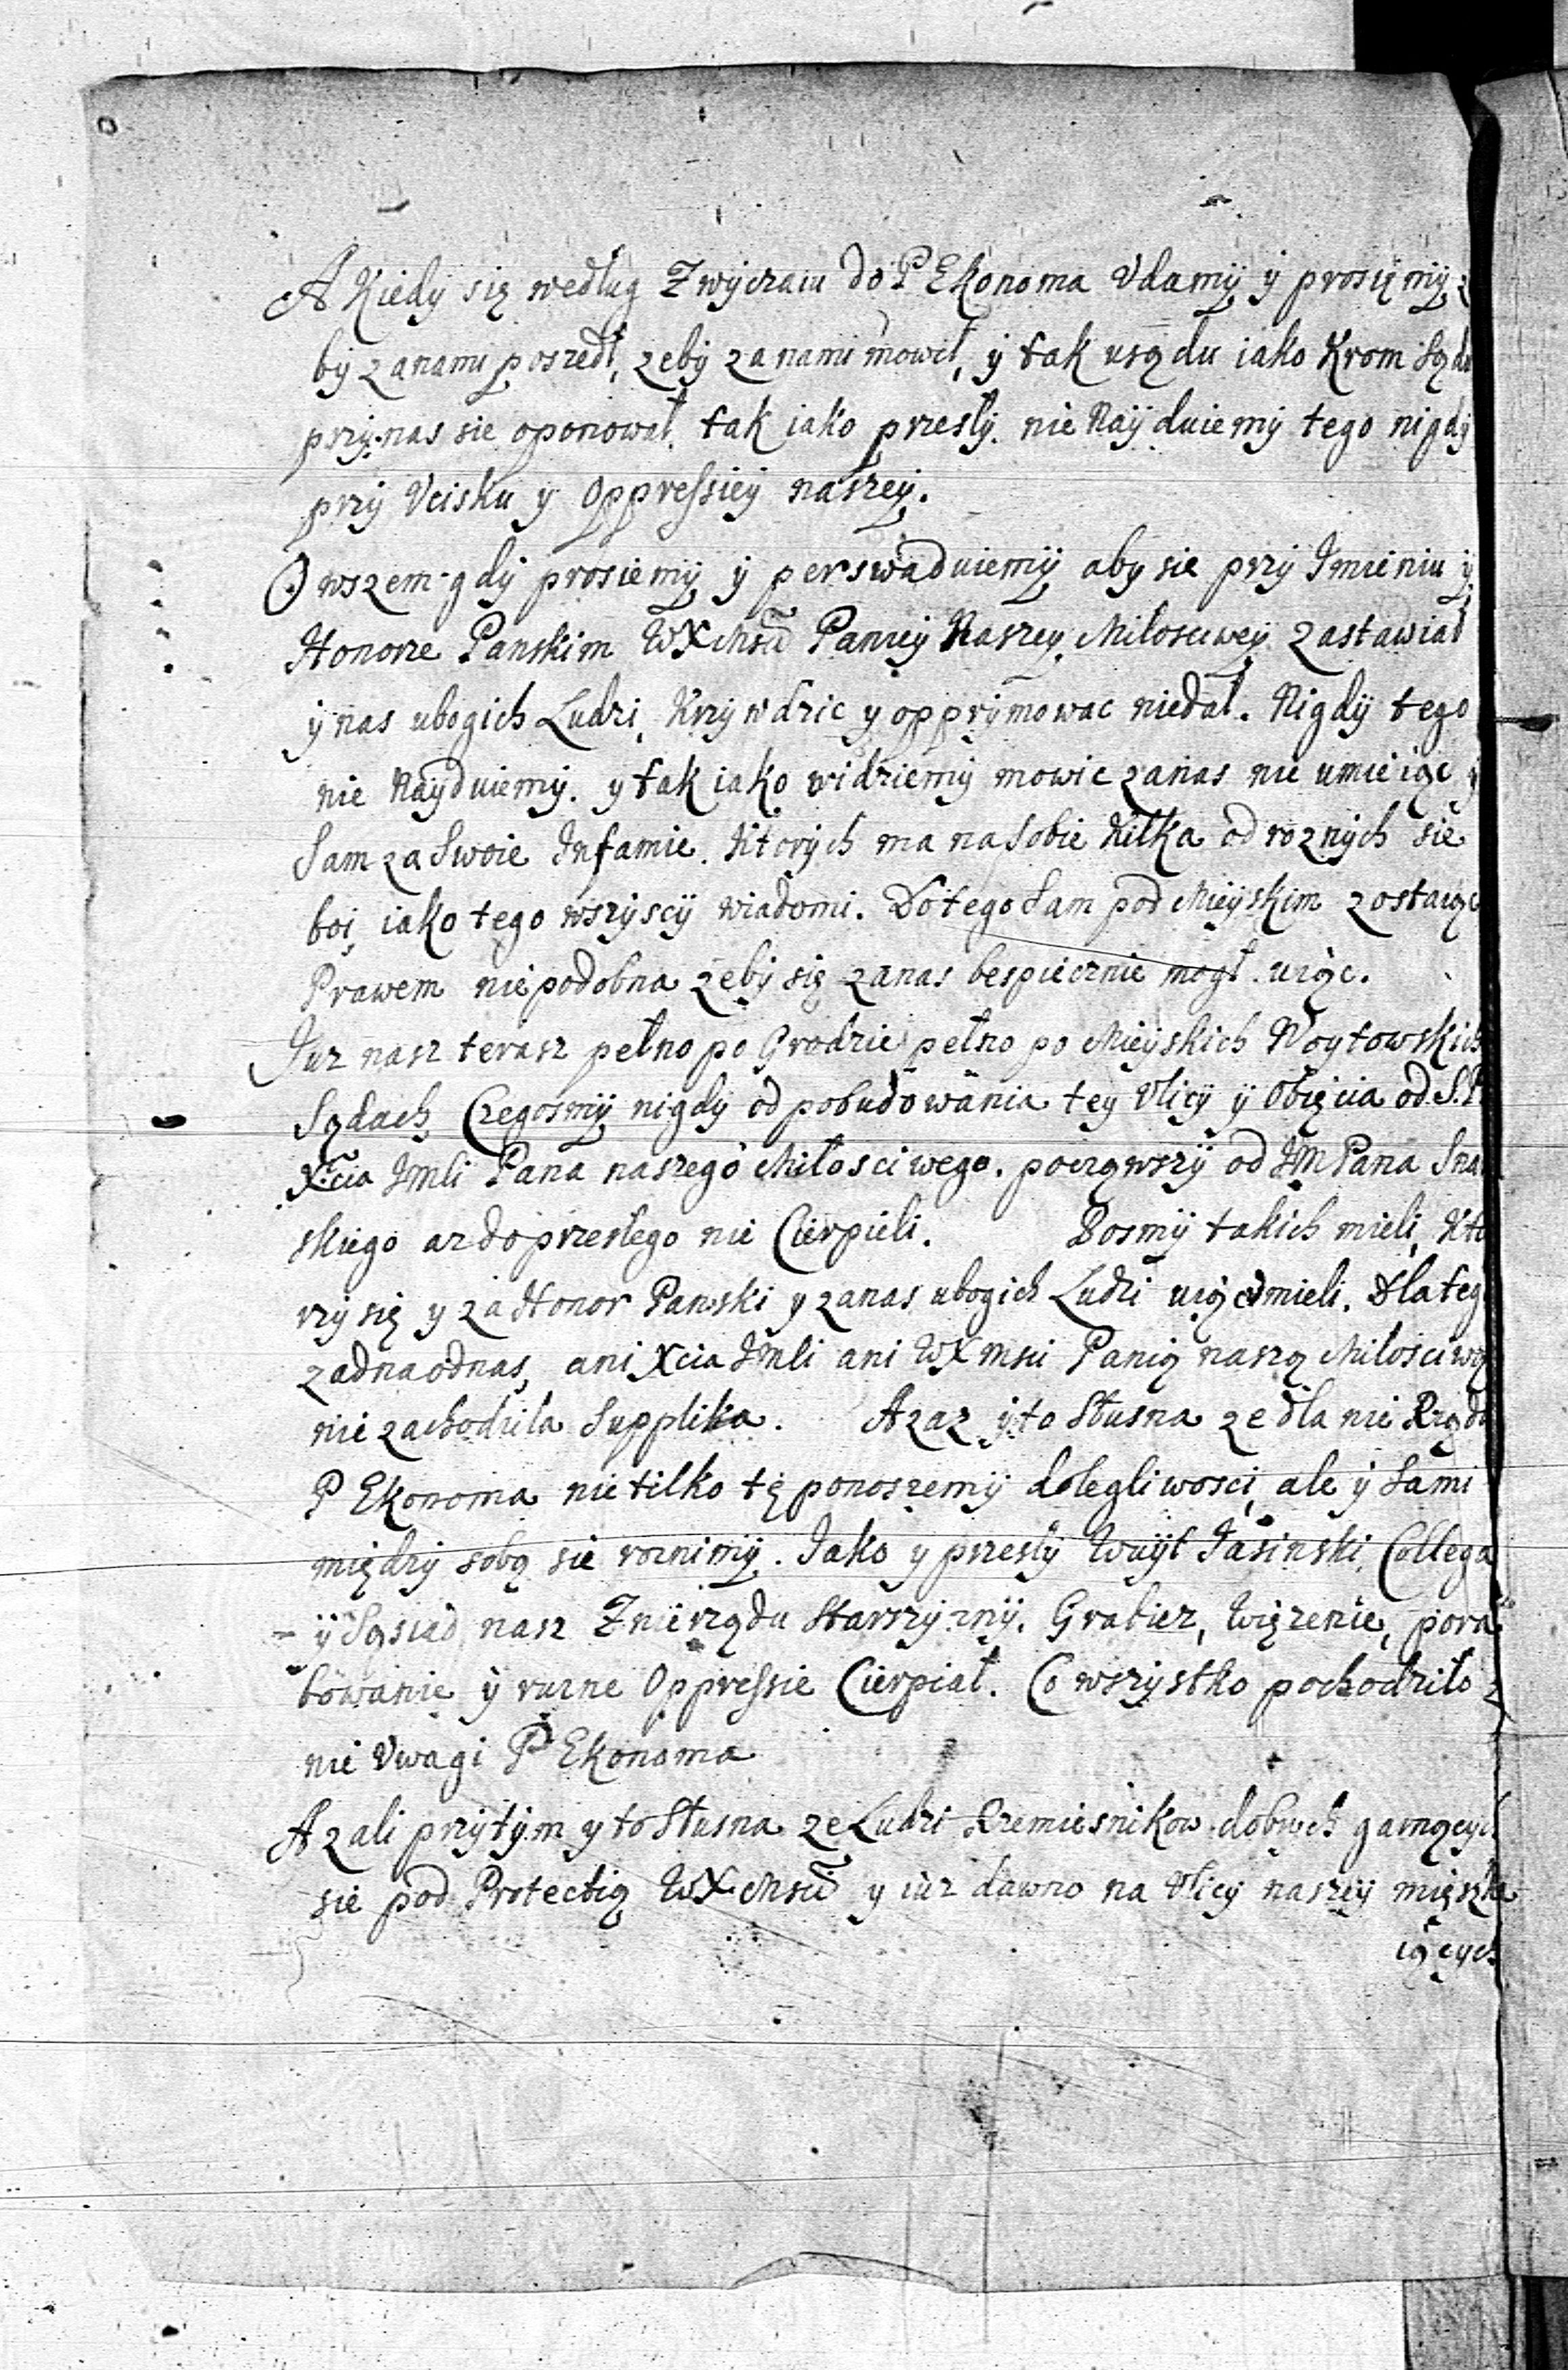 A Kiedy się według Zwyczaiu do P Ekonoma Vdamy y prosięmy z
by zanami poszedł, zeby zanami mowił, y tak usądu iako Krom Sądu
przy nas sie oponował, tak iako przesły, nie Nayduiemy tego nigdy
przy Vcisku y Oppressiey naszey.
Owszem gdy prosiemy y perswaduiemy aby sie przy Imieniu y
Honorze Panskim WXMsci Paniey Naszey Miłosciwey zastawiał
y nas ubogich Ludzi, Krzywdzic y opprymowac niedał. Nigdy tego
nie Nayduiemy. y tak iako widziemy mowic zanas nie umieiąc y
Sam za Swoie Infamie, Ktorych ma na Sobie Kilka od roznych sie
boi, iako tego wszyscy wiadomi. Do tego Sam pod Mieyskim zostaiąc
Prawem nie podobna zeby się zanas bespiecznie mogł uiąc.
Juz nasz terasz pełno po Grodzie pełno po Mieyskich Woytowskich
Sądach, Czegosmy nigdy od pobudowania tey Vlicy y Obięcia od S.P.
Xcia JMli Pana naszego Miłosciwego, począwszy od JM Pana
skiego az do przesłego nie Cierpieli. Bosmy takich mieli, Kto
rzy się y za Honor Panski y zanas ubogich Ludzi uiąc umieli. Dla tego
zadna od nas, ani Xcia JMli ani WXMsci Panią naszą Miłosciwą
nie zachodziła Supplika. Azaz y to Słusna ze dla nie Rządu
P Ekonoma nie tilko tę ponoszemy dolegliwosci, ale y Sami
między sobą sie roznimy. Jako y przesły Wuyt Jasinski, Collega
y Sąsiad nasz Z nierządu Starszyzny, Grabiez, Więzenie, pora
bowanie y ruzne Oppressie Cierpiał. Co wszystko pochodziło z
nie Vwagi P Ekonoma
Azali przytym y to Słusna ze Ludzi Rzemiesnikow dobrych garnących
sie pod Protectią WXMsci y iuz dawno na Vlicy naszey mięszka
iących